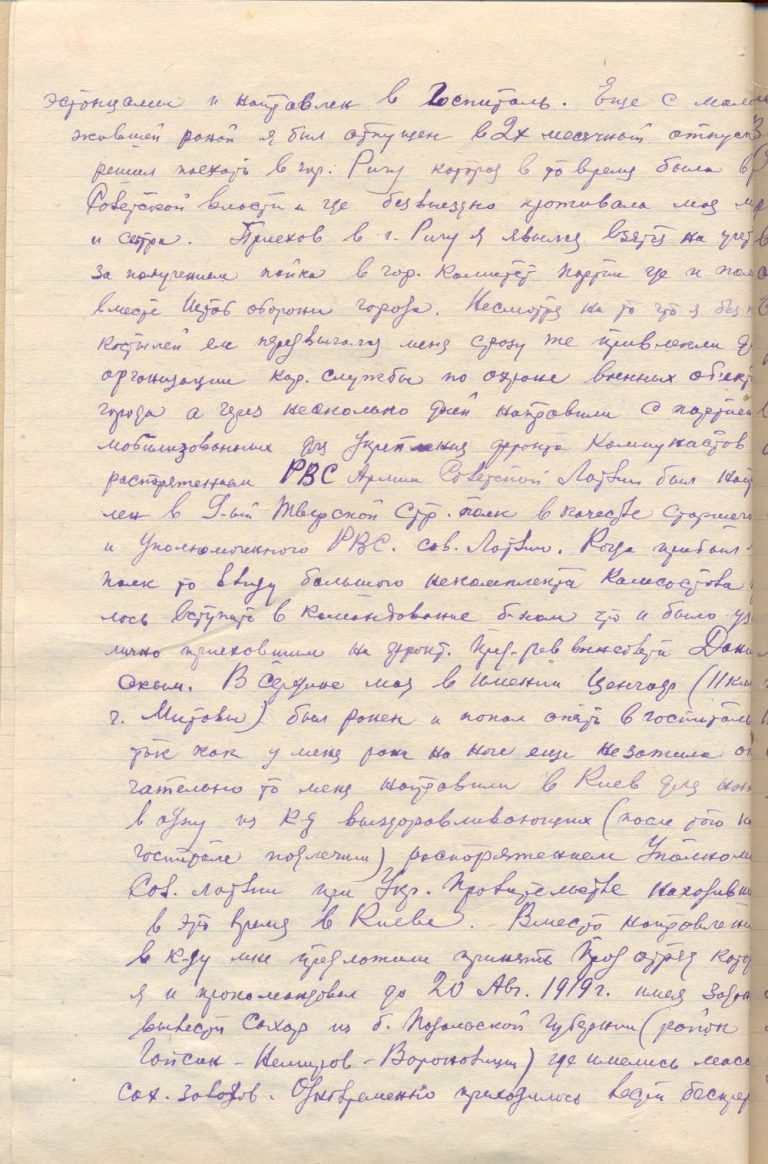 эстонцами и направлен в Госпиталь. Еще с мало
жившей раной я был отпущен в 2х месячный отпуск
решил поехать в гор. Ригу которая в то время была в
Советской власти и где безвыездно проживала моя
и сестра. Приехов в г. Ригу я явился взятся на учет
за получением пайка в гор. Комитет Партии где и
вместе Штаб обороны города. Несмотря на то что я без
костылей еи передвигался меня сразу же привлекли
организации кар. службы по охране военных об'ект
города а через несколько дней направили с партией
мобилизованных для Укрепления фронта Коммунистов
распоряжением РВС Армии Советской Латвии был нап
лен в 9-ый Тверской Стр. полк в качестве Старшего
и Уполномоченного РВС. сов. Латвии. Когда прибыл
полк то ввиду большого некомплекта Комсостава
лось вступить в командование б-ном что и было
лично приехавшим на фронт. Пред. рев военсовета Дани
ским. В Середине мая в имении Ценгоф (11 клм
г. Митавы) был ранен и попал опять в госпиталь
так как у меня рана на ноге еще не зажила ок
чательно то меня направили в Киев для
в одну из к-д выздоравливающих (после того
госпитале подлечили) распоряжением Уполном
Сов. Латвии при Укр. Правительстве находивш
в это время в Киеве. Вместо направления
в к-ду мне предложили принять Прод отряд кото
я и прокомандовал до 20 Авг. 1919 г. имея задан
вывести Сахар из б. Подольской Губернии (район
Гайсин - Немиров - Вороновицы) где имелись масс
сах. заводов. Одновременно приходилось вести беспре